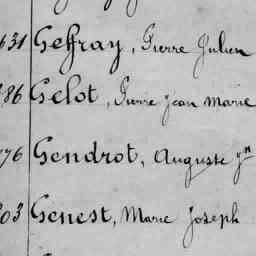 631 Geffray, Pierre Julien
686 Gelot, Pierre Jean Marie
776 Gendrot, Auguste Jn
303 Genest, Marie Joseph